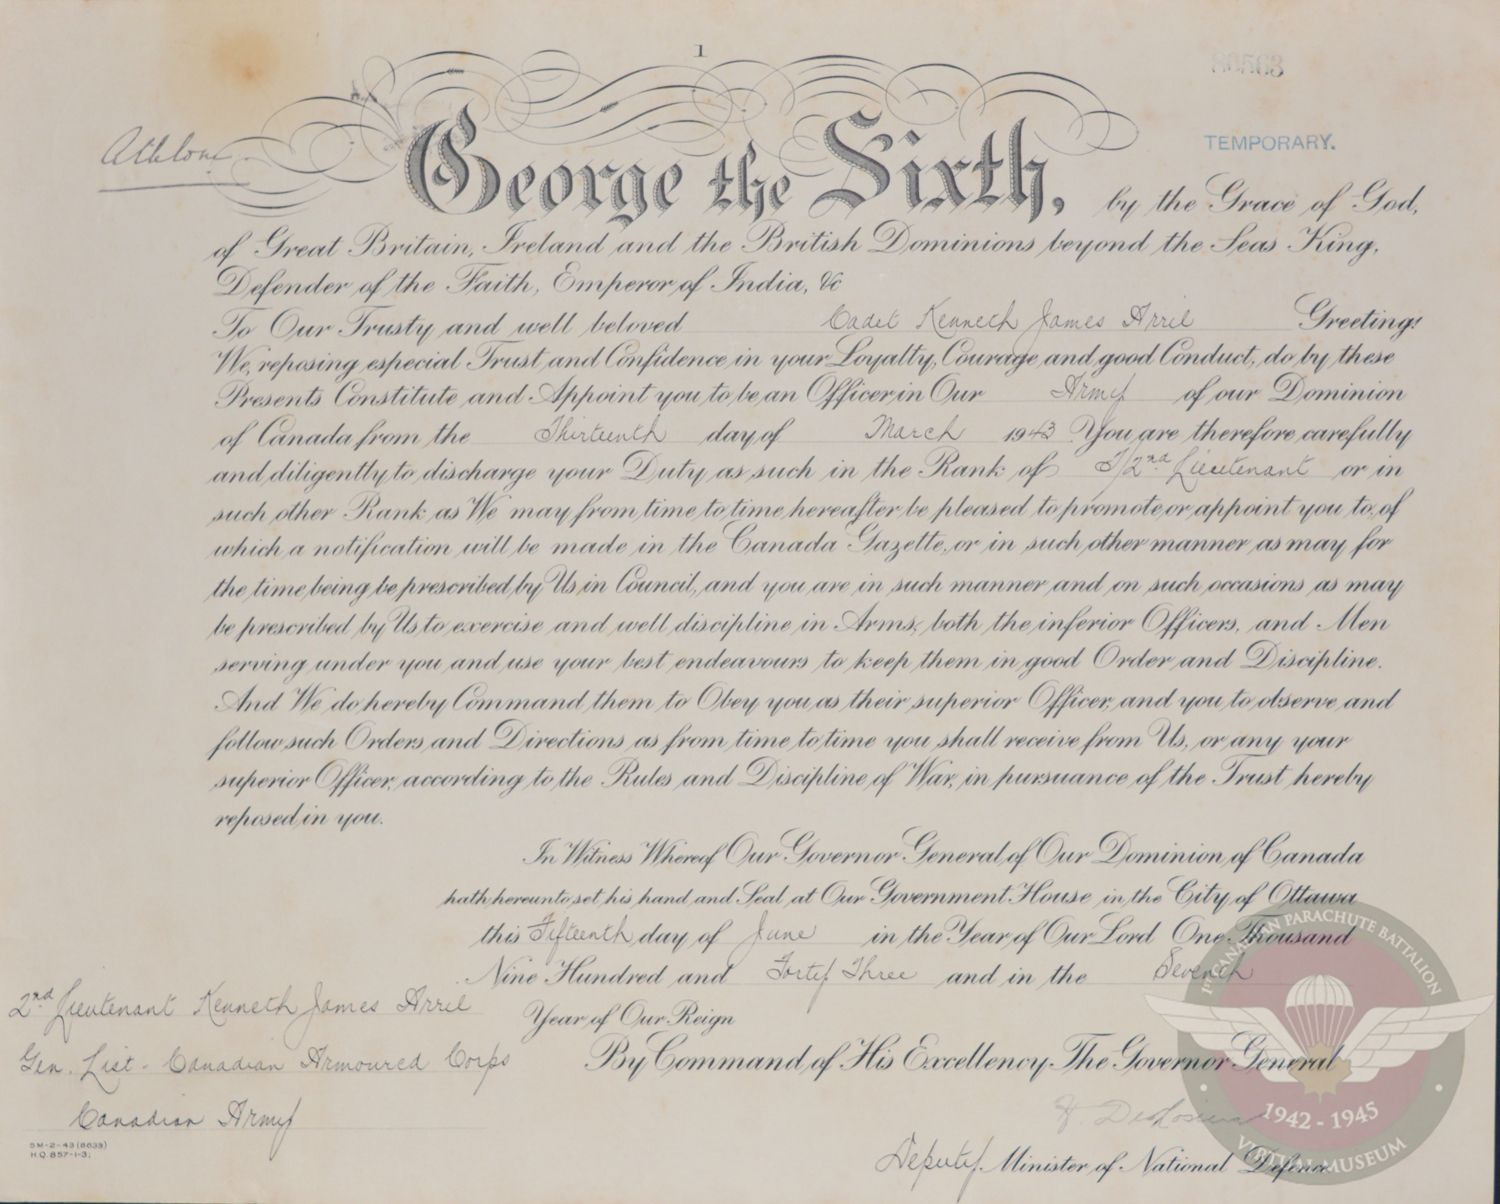 1
80563
TEMPORARY.
Athlone
George the Sixth, by the Grace of God,
of Great Britain, Ireland and the British Dominions beyond the Seas King,
Defender of the Faith, Emperor of India, &c
To Our Trusty and well beloved Cadet Kenneth James Arril Greeting:
We, reposing especial Trust and Confidence in your Loyalty, Courage and good Conduct, do by these
Presents Constitute and Appoint you to be an Officer in Our Army of our Dominion
of Canada from the Thirteenth day of March 1943 You are therefore carefully
and diligently to discharge your Duty as such in the Rank of T/2nd Lieutenant or in
such other Rank as We may from time to time hereafter be pleased to promote or appoint you to, of
which a notification will be made in the Canada Gazette, or in such other manner as may for
the time being be prescribed by Us in Council, and you are in such manner and on such occasions as may
be prescribed by Us to exercise and well discipline in Arms, both the inferior Officers, and Men
serving under you and use your best endeavours to keep them in good Order and Discipline.
And We do hereby Command them to Obey you as their superior Officer, and you to observe and
follow such Orders and Directions as from time to time you shall receive from Us, or any your
superior Officer, according to the Rules and Discipline of War, in pursuance of the Trust hereby
reposed in you.
In Witness Whereof Our Governor General of Our Dominion of Canada
hath hereunto set his hand and Seal at Our Government House in the City of Ottawa
this Fifteenth day of June in the Year of Our Lord One Thousand
Nine Hundred and Forty Three and in the Seventh
Year of Our Reign
By Command of His Excellency The Governor General
Deputy Minister of National Defence
2nd Lieutenant Kenneth James Arril
Gen. List - Canadian Armoured Corps
Canadian Army
5M-2-43 (6633)
H.Q. 857-1-3;
1ST CANADIAN PARACHUTE BATTALION
1942 - 1945
VIRTUAL MUSEUM